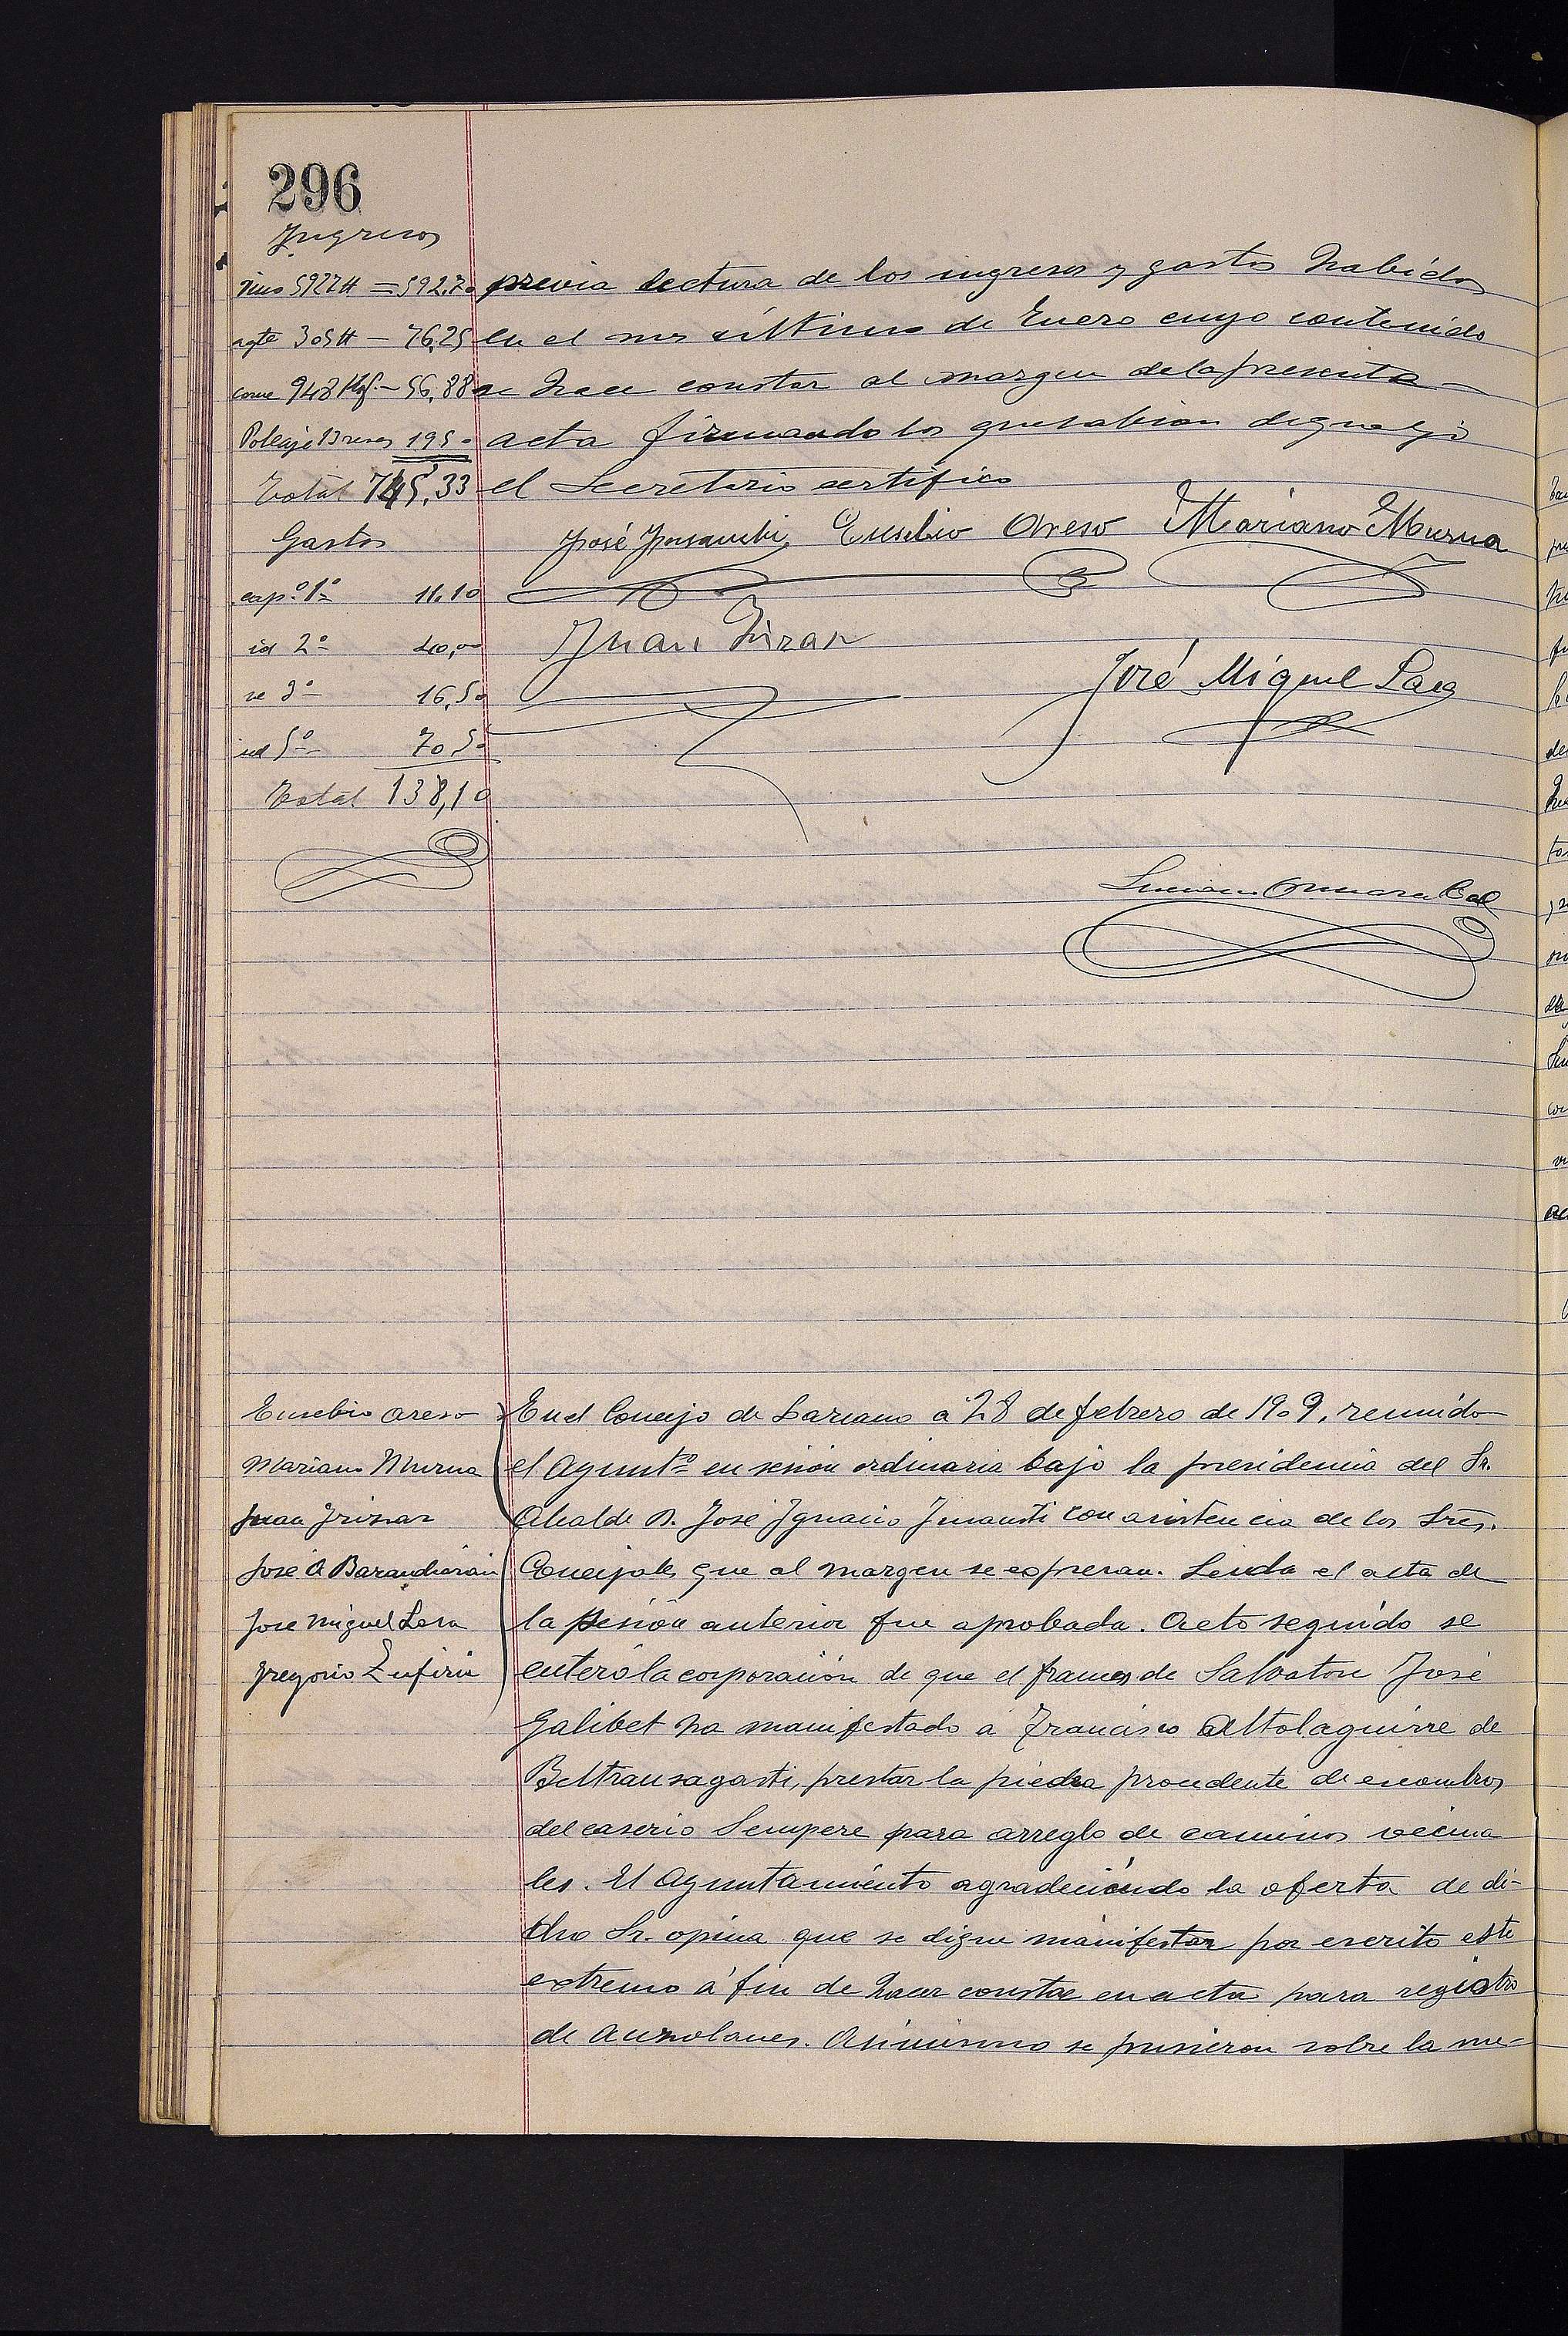 296
Ingresos
vino 5927 lt = 592,70
agte 305 lt — 76,25
carne 948 Kg. — 56,88
Poleaje Breses 19 50
Total 745,33
Gastos
cap.º 1º 11,10
id 2º 40,00
id 3º 16,50
id 5º 70 50
Total 138,10
previa lectura de los ingresos y gastos habidos
en el mes último de Enero cuyo contenido
se hace constar al margen de la presente
acta firmando los que sabian de que yo
el Secretario certifico
José Eusebio Areso Mariano Murua
Juan Irizar
José Miguel Lasa
Eusebio Areso
Mariano Murua
Juan Irizar
José A Barandiarán
José Miguel Lasa
Gregorio Zufiria
En el Concejo de Lazcano á 28 de febrero de 1909, reunido
el Ayuntº en sesión ordinaria bajo la presidencia del Sr.
Alcalde D. José Ignacio con asistencia de los Sres.
Concejales que al margen se expresan. Leida el acta de
la sesión anterior fue aprobada. Acto seguido se
enteró la corporación de que el frances de Salvatore José
Galibet ha manifestado á Francisco Altolaguirre de
Beltransagasti, prestar la piedra procedente de escombros
del caserio Sempere para arreglo de caminos vecina
les. El Ayuntamiento agradeciendo la oferta de di-
cho Sr. opina que se digne manifestar por escrito este
extremo á fin de hacer constar en acta para registro
de auzolanes. Asimismo se pusieron sobre la me-